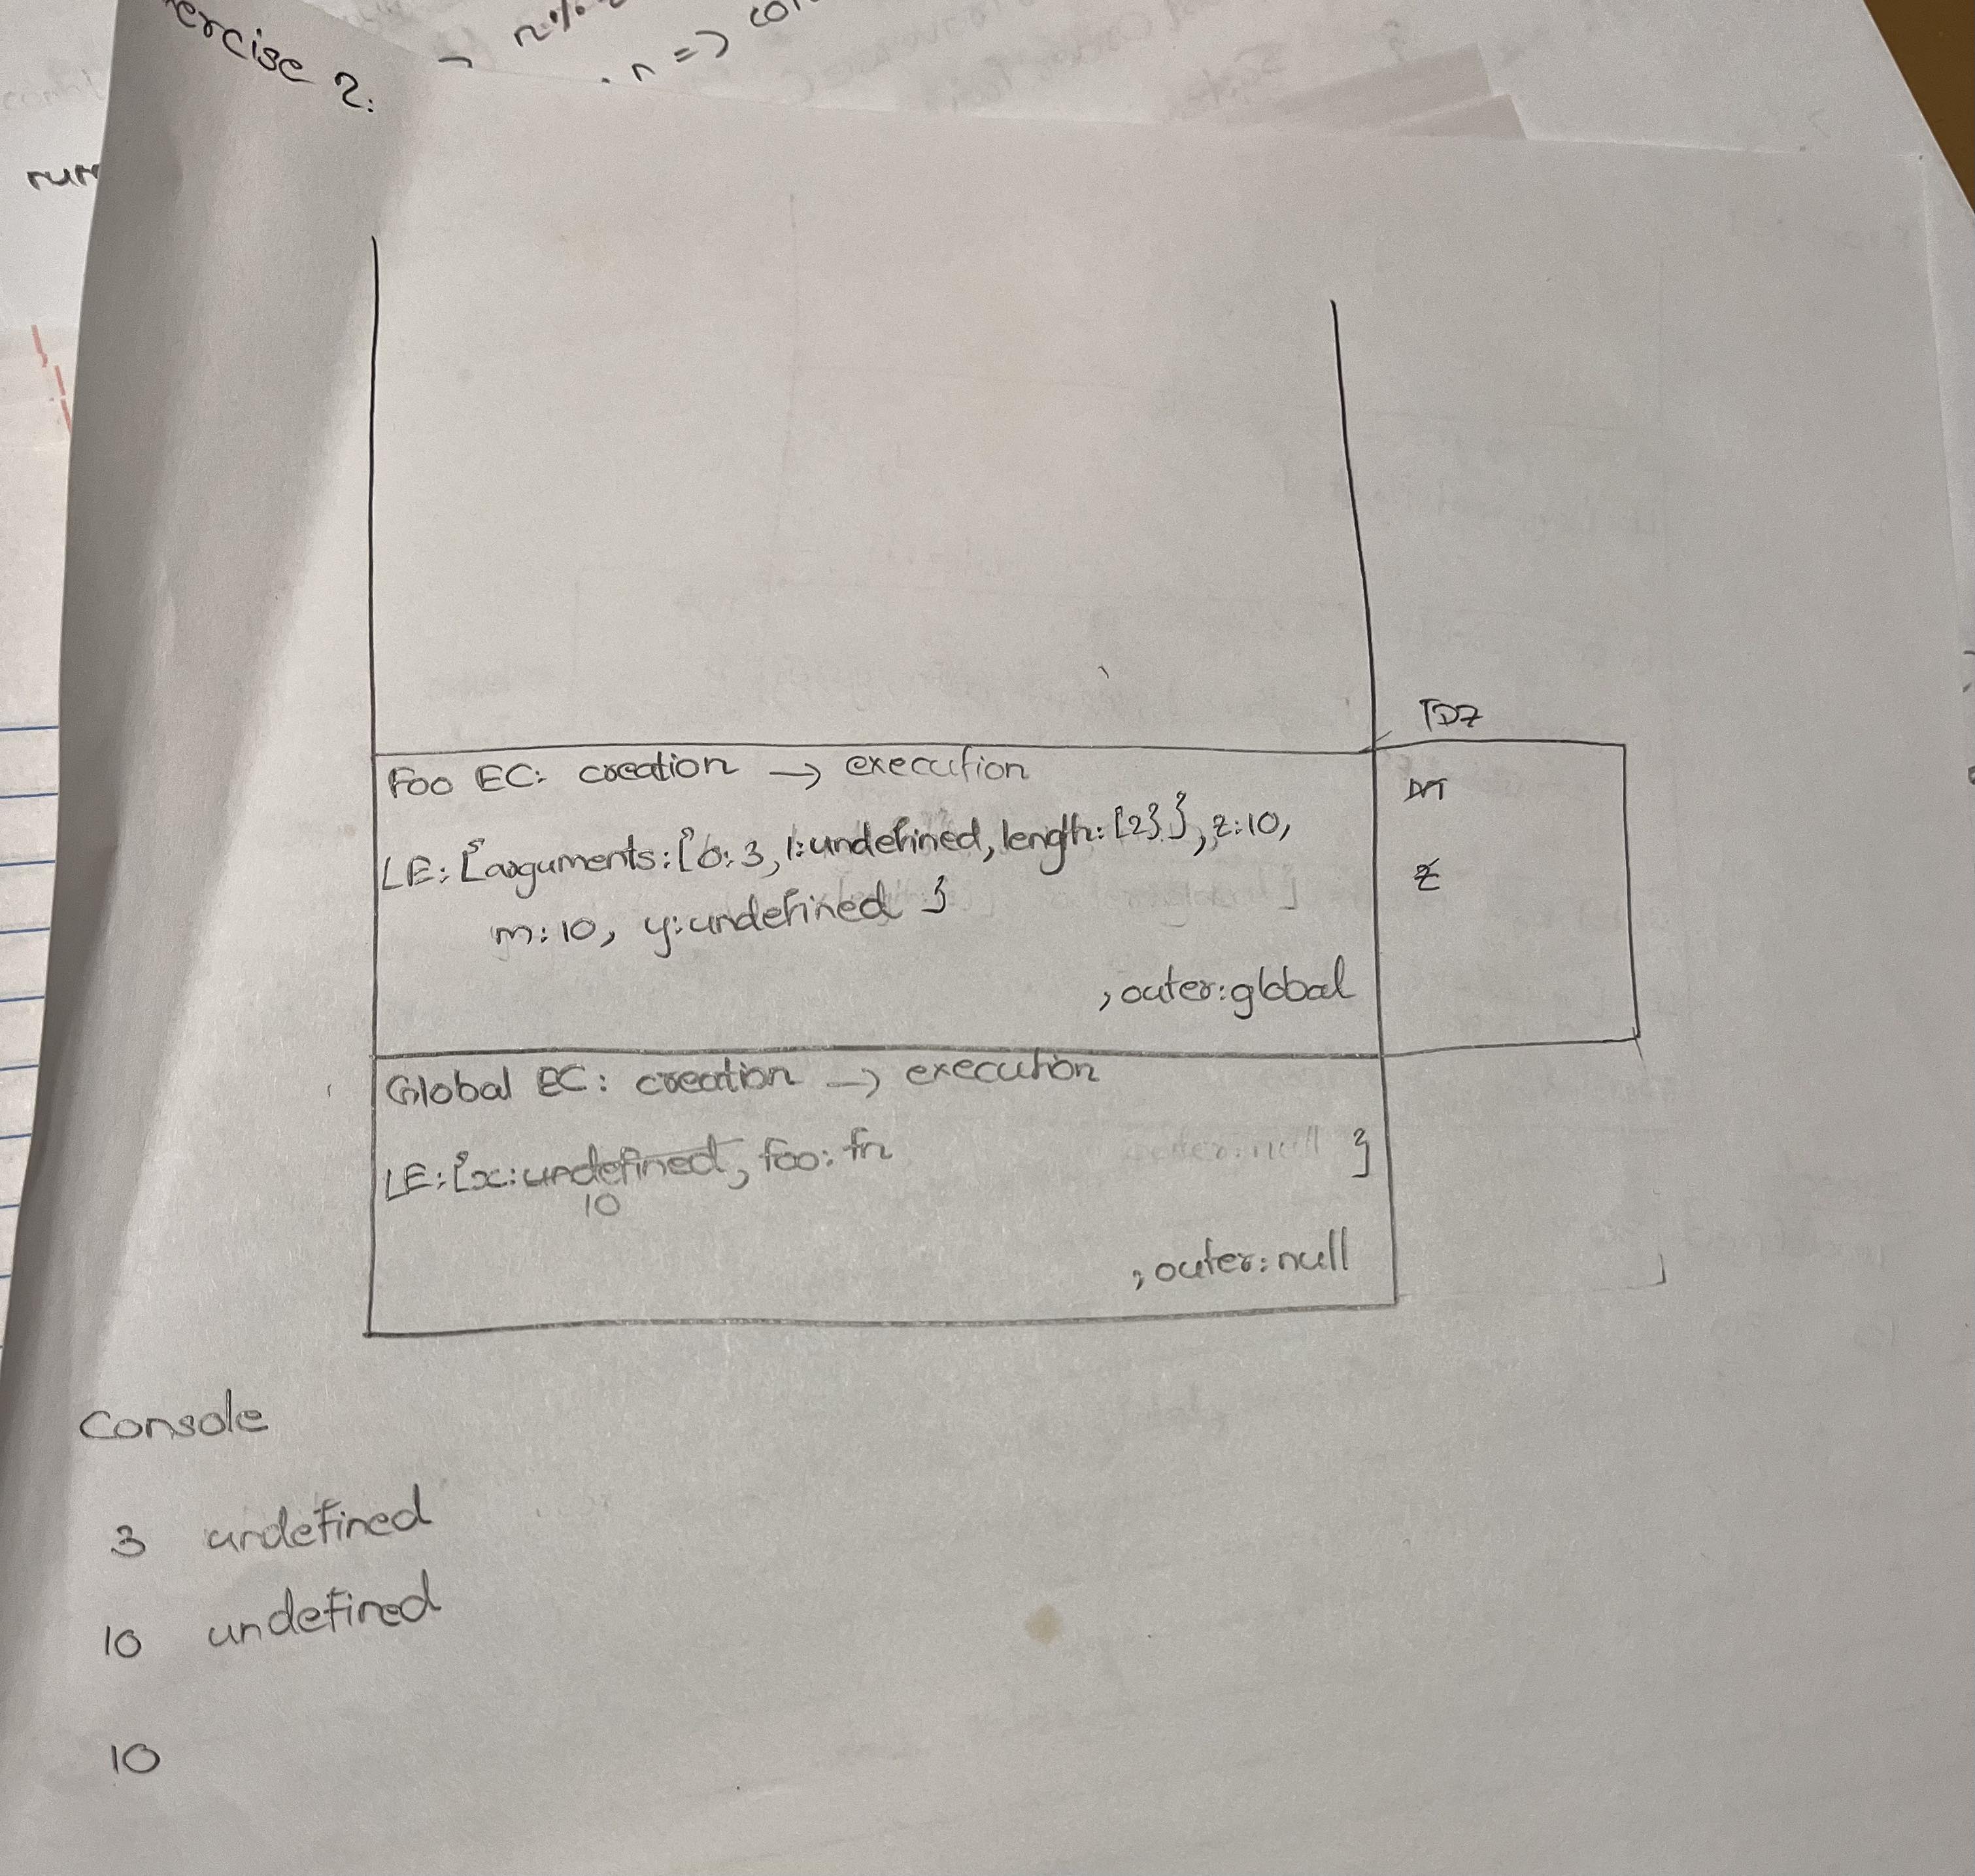 ercise 2:
n%
n => con
num
TDZ
Foo EC: creation → execution
m
LE: {arguments: {0: 3, 1: undefined, length: {2}}, z:10,
z
m: 10, y: undefined }
, outer: global
Global EC: creation → execution
LE: {x: undefined, foo: fn }
10
, outer: null
Console
3 undefined
10 undefined
10